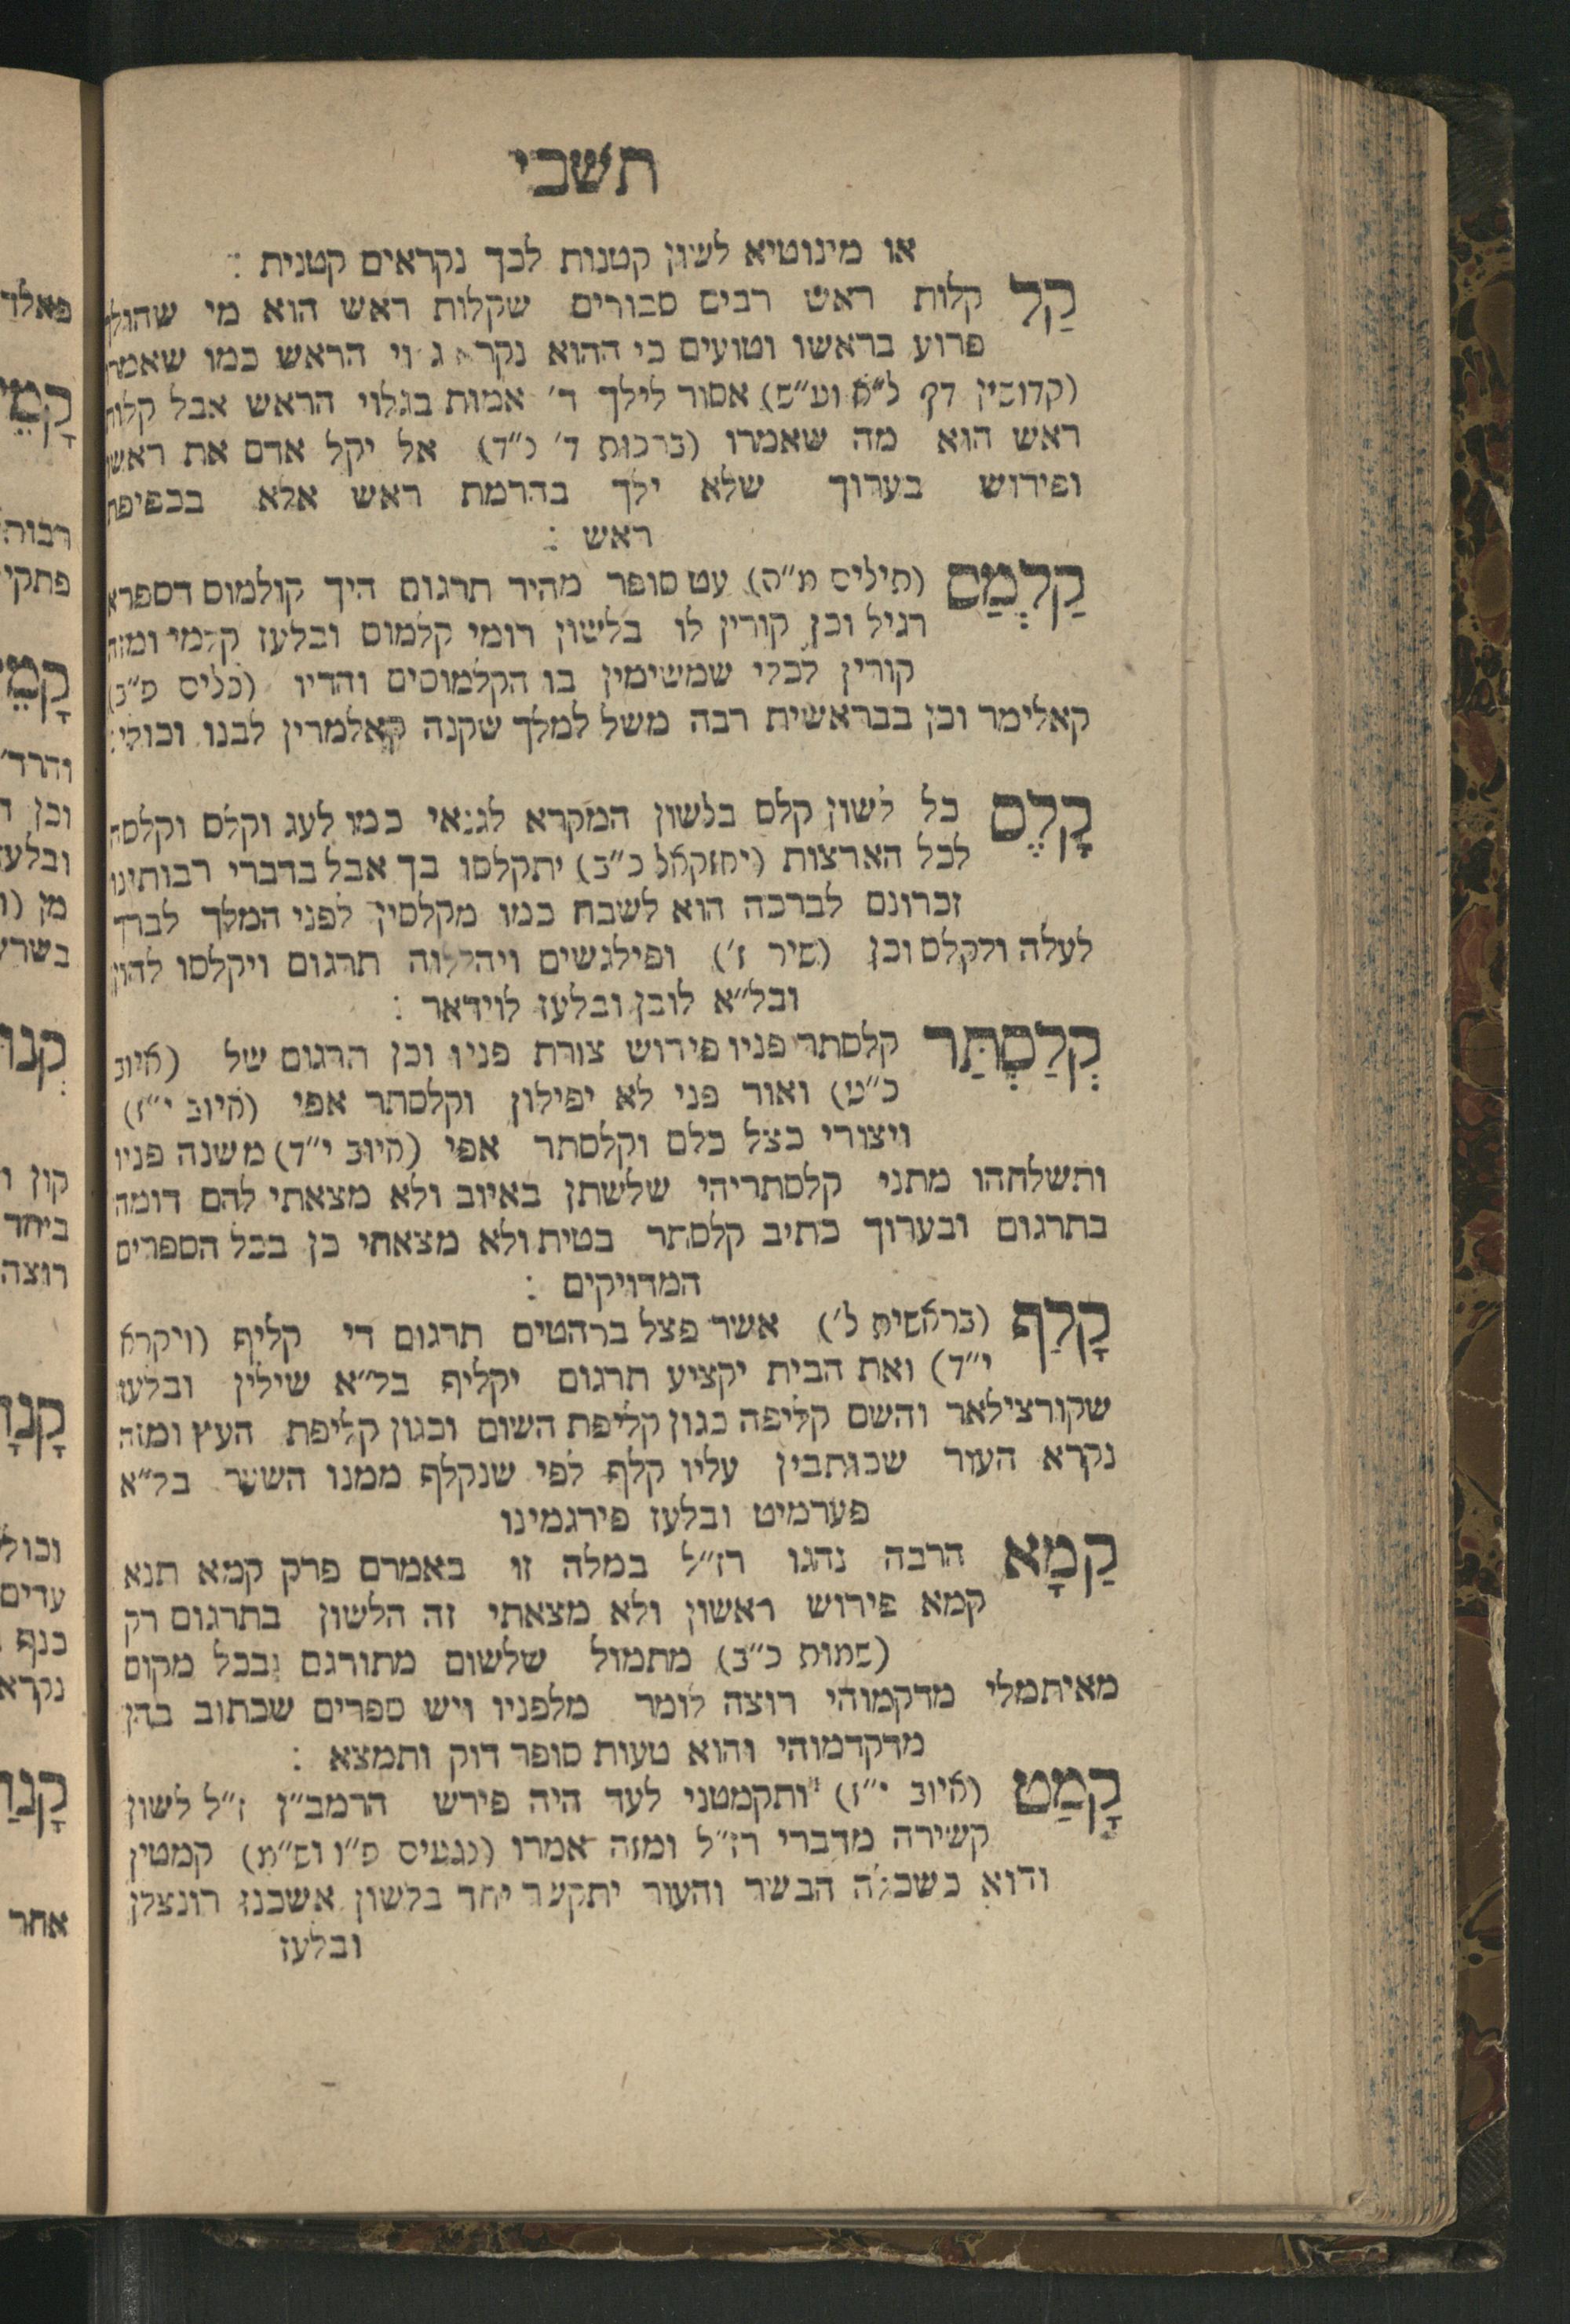 תשבי
או מינוטיא לשון קטנות לכך נקראים קטנית :
קַל קלות ראש רבים סבורים שקלות ראש הוא מי שהולך
פרוע בראשו וטועים כי ההוא נקרא גלוי הראש כמו שאמרו
(קדושין דף ל"א וע"ש) אסור לילך ד' אמות בגלוי הראש אבל קלות
ראש הוא מה שאמרו (ברכות ד' כ"ד) אל יקל אדם את ראשו
ופירוש בערוך שלא ילך בהרמת ראש אלא בכפיפת
ראש :
קַלְמַס (תילים מ"ה) עט סופר מהיר תרגום היך קולמוס דספרא
רגיל וכן קורין לו בלשון רומי קלמוס ובלעז קלמי ומזה
קורין לכלי שמשימין בו הקלמוסים והדיו (כלים פ"ב)
קאלימר וכן בבראשית רבה משל למלך שקנה קאלמרין לבנו וכולי:
קָלֶס כל לשון קלס בלשון המקרא לגנאי כמו לעג וקלס וקלסה
לכל הארצות (יחזקאל כ"ב) יתקלסו בך אבל בדברי רבותינו
זכרונם לברכה הוא לשבח כמו מקלסין לפני המלך לברך
לעלה ולקלס וכן (שיר ז') ופילגשים ויהללוה תרגום ויקלסו להון
ובל"א לובן ובלעז לוידאר :
קְלַסְתַּר קלסתר פניו פירוש צורת פניו וכן תרגום של (איוב
כ"ט) ואור פני לא יפילון וקלסתר אפי (איוב י"ז)
ויצורי כצל כלם וקלסתר אפי (איוב י"ד) משנה פניו
ותשלחהו מתני קלסתריהי שלשתן באיוב ולא מצאתי להם דומה
בתרגום ובערוך כתיב קלסתר בטית ולא מצאתי כן בכל הספרים
המדויקים :
קָלַף (בראשית ל') אשר פצל ברהטים תרגום די קליף (ויקרא
י"ד) ואת הבית יקציע תרגום יקליף בל"א שילין ובלעז
שקורצילאר והשם קליפה כגון קליפת השום וכגון קליפת העץ ומזה
נקרא העור שכותבין עליו קלף לפי שנקלף ממנו השער בל"א
פערמיט ובלעז פירגמינו
קַמָא הרבה נהגו רז"ל במלה זו באמרם פרק קמא תנא
קמא פירוש ראשון ולא מצאתי זה הלשון בתרגום רק
(שמות כ"ב) מתמול שלשום מתורגם ובכל מקום
מאיתמלי מדקמוהי רוצה לומר מלפניו ויש ספרים שכתוב בהן
מדקדמוהי והוא טעות סופר דוק ותמצא :
קָמַט (איוב י"ז) ותקמטני לעד היה פירש הרמב"ן ז"ל לשון
קשירה מדברי רז"ל ומזה אמרו (נגעים פ"ו ופ"ח) קמטין
והוא כשכלה הבשר והעור יתקער יחד בלשון אשכנז רונצלן
ובלעז